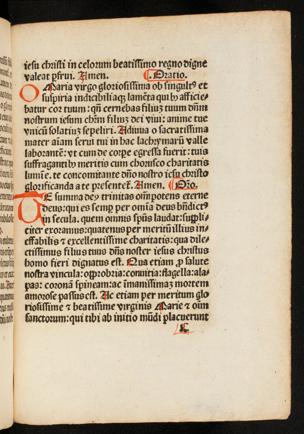 iesu christi in celorum beatissimo regno digne
valeat pfrui. Amen. Oratio.
O Maria virgo gloriosissima ob singultꝰ et
suspiria indicibiliaqꝫ lamēta qui hꝰ afficie-
batur cor tuum: qn̄ cernebas filiuꝫ tuum dn̄m
nostrum iesum chr̄m filiuꝫ dei viui: anime tue
vnicū solatiuꝫ sepeliri. Adiuua o sacratissima
mater aīam serui tui in hac lachrymarū valle
laborantē: vt cum de corpe egressa fuerit: tuis
suffragantibꝰ meritis cum chorusco charitatis
lumīe. te concomitante dn̄o nostro iesu christo
glorificanda a te presentet. Amen. Oīo.
TE summa deꝰ trinitas om̄potens eterne
deus: qui es semp̄ per oīa deus bn̄dictꝰ
in secula. quem omnis spūs laudat: suppli-
citer exoramus: quatenus per meritū illius in-
effabilis et excellentissime charitatis: qua dile-
ctissimus filius tuus dn̄s noster iesus christus
homo fieri dignatus est. Qua etiam ꝓ salute
nostra vincula: opprobria: conuitia: flagella: ala-
pas: coronā spineam: ac īmanissimaꝫ mortem
amorose passus est. Ac etiam per meritum glo
riosissime et beatissime virginis Marie et oīm
sanctorum: qui tibi ab initio mūdi placuerunt